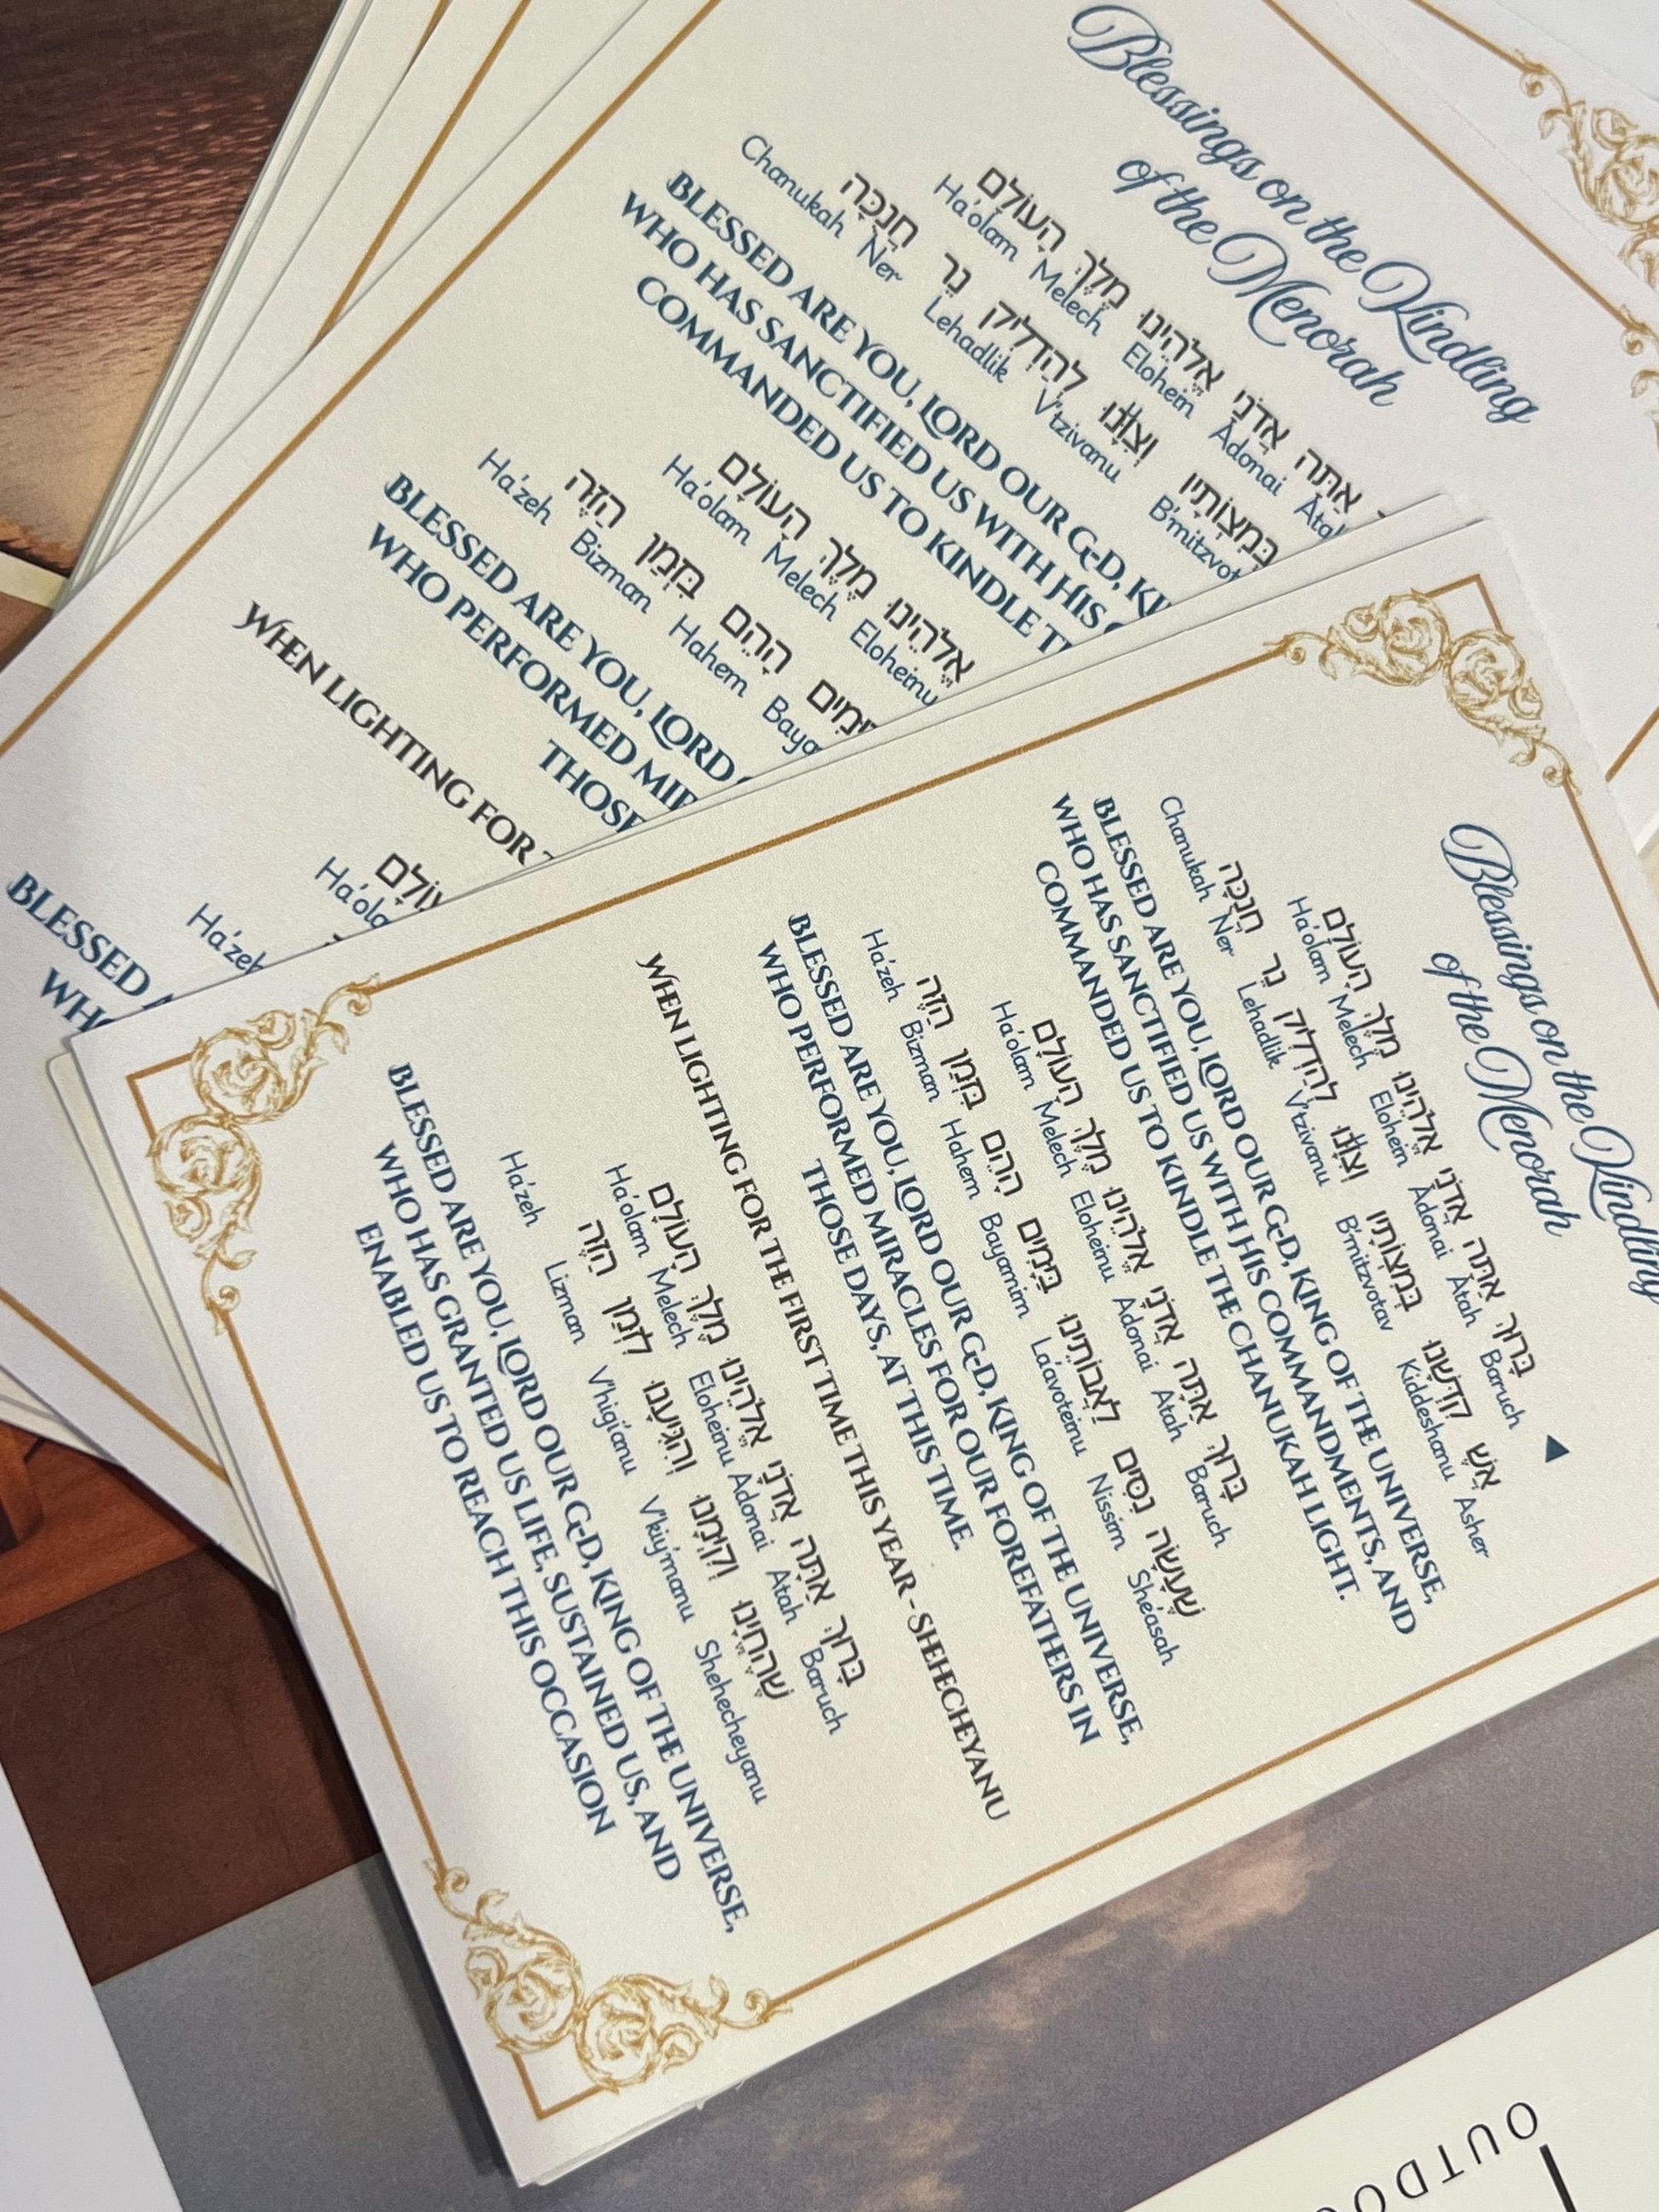 Blessings on the Kindling
of the Menorah
בָּרוּךְ אַתָּה אֲדֹנָי אֱלֹהֵינוּ מֶלֶךְ הָעוֹלָם
Ha'olam Melech Elohein Adonai Atah Baruch
אֲשֶׁר קִדְּשָׁנוּ בְּמִצְוֹתָיו וְצִוָּנוּ לְהַדְלִיק נֵר חֲנֻכָּה
Chanukah Ner Lehadlik V'tzivanu B'mitzvotav Kiddeshanu Asher
BLESSED ARE YOU, LORD OUR G-D, KING OF THE UNIVERSE,
WHO HAS SANCTIFIED US WITH HIS COMMANDMENTS, AND
COMMANDED US TO KINDLE THE CHANUKAH LIGHT.
בָּרוּךְ אַתָּה אֲדֹנָי אֱלֹהֵינוּ מֶלֶךְ הָעוֹלָם
Ha'olam Melech Eloheinu Adonai Atah Baruch
שֶׁעָשָׂה נִסִּים לַאֲבוֹתֵינוּ בַּיָּמִים הָהֵם בִּזְמַן הַזֶּה
Ha'zeh Bizman Hahem Bayamim La'avoteinu Nissim She'asah
BLESSED ARE YOU, LORD OUR G-D, KING OF THE UNIVERSE,
WHO PERFORMED MIRACLES FOR OUR FOREFATHERS IN
THOSE DAYS, AT THIS TIME.
WHEN LIGHTING FOR THE FIRST TIME THIS YEAR - SHEHECHEYANU
בָּרוּךְ אַתָּה אֲדֹנָי אֱלֹהֵינוּ מֶלֶךְ הָעוֹלָם
Ha'olam Melech Eloheinu Adonai Atah Baruch
שֶׁהֶחֱיָנוּ וְקִיְּמָנוּ וְהִגִּיעָנוּ לִזְמַן הַזֶּה
Ha'zeh Lizman V'higi'anu V'kiy'manu Shehecheyanu
BLESSED ARE YOU, LORD OUR G-D, KING OF THE UNIVERSE,
WHO HAS GRANTED US LIFE, SUSTAINED US, AND
ENABLED US TO REACH THIS OCCASION
Blessings on the Kindling
of the Menorah
אַתָּה אֲדֹנָי אֱלֹהֵינוּ מֶלֶךְ הָעוֹלָם
Ha'olam Melech Elohein Adonai Atah
בְּמִצְוֹתָיו וְצִוָּנוּ לְהַדְלִיק נֵר חֲנֻכָּה
Chanukah Ner Lehadlik V'tzivanu B'mitzvot
BLESSED ARE YOU, LORD OUR G-D, KI
WHO HAS SANCTIFIED US WITH HIS
COMMANDED US TO KINDLE T
אֱלֹהֵינוּ מֶלֶךְ הָעוֹלָם
Ha'olam Melech Eloheinu
יָמִים הָהֵם בִּזְמַן הַזֶּה
Ha'zeh Bizman Hahem Baya
BLESSED ARE YOU, LORD
WHO PERFORMED MIR
THOSE
WHEN LIGHTING FOR
עוֹלָם
Ha'ola
Ha'zeh
BLESSED
WHO
OUTDO